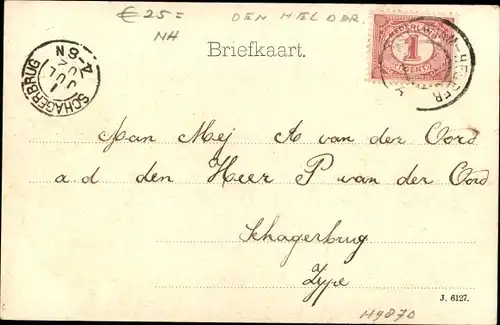 € 25=
NH
DEN HELDER.
Briefkaart.
NEDERLAND
1
CENT
SCHAGERBRUG
1
JUL
02
4-8N
HELDER
Aan Mej A van der Oord
a.d den Heer P van der Oord
Schagerbrug
Zype
J. 6127.
H9870